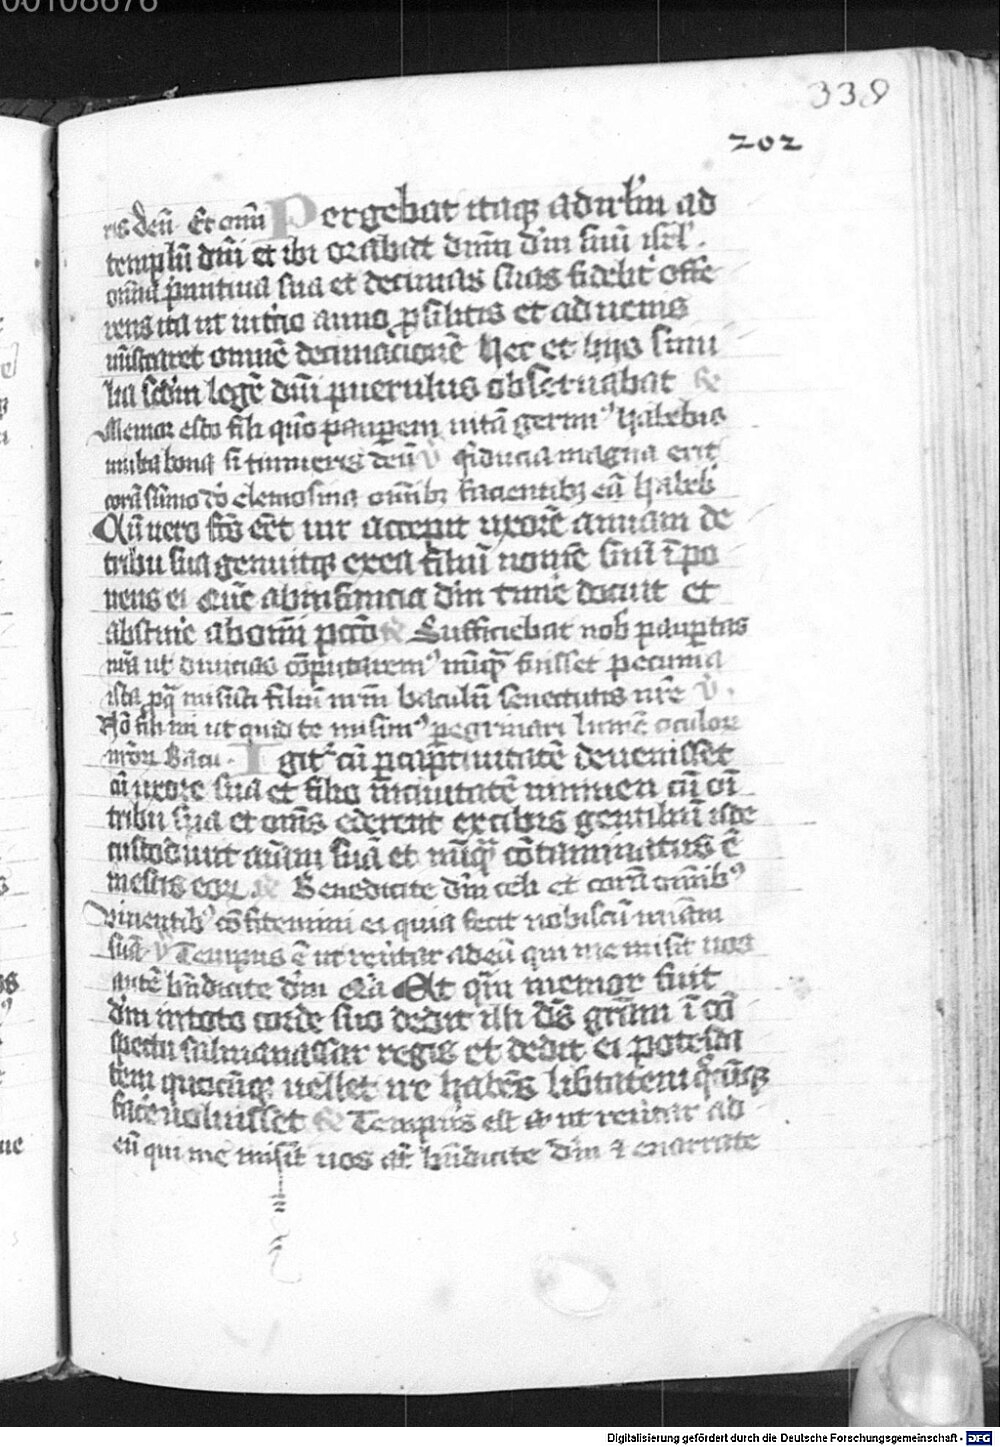 00108676
339
202
ris deū. Et omī Pergebat itaq; ad irl'm ad
templū dm̄i et ibi orabat dnm̄ d'm suū isrl'.
omnia p̄mitiua sua et decimas suas fidelit' offe
rens ita ut in t'cio anno p̱silitis et aduenis
mīstraret omnē decimacionē Hec et hijs simi
lia scd'm legē dm̄i puerulus obseruabat
Memor esto fili qm̄o pauperem uitā gerim' habebis
multa bona si timueris deū v̄ fiducia magna erit
corā sūmo do elemosina omīb; facientib; eā Habeb'
Cū uero fc̄s eēt uir accepit uxorē annam de
tribu sua genuitq; ex ea filiū nomē suū īpo
nens ei Quē ab infancia d'm timē docuit et
abstinē ab omī pctō Sufficiebat nob' paupertas
nr̄a ut diuicias cōputarem' nūq̄ fuisset pecunia
ista p̱ q̄ misisti filiū nr̄m baculū senectutis nr̄e v̄.
Ho fili mi ut quid te misim' peg'nari lumē oculor̄
nr̄or̄ Bacu. Igit' cū p̱ captiuitatē deuenisset
cū uxore sua et filio in ciuitatē niniuen cū oī
tribu sua et om̄s ederent ex cibis gentiliū iste
custodiuit aīam suā et nūq̄ cōtaminatus ē
in escis eor̄. Benedicite d'm celi et corā omīb'
viuentib' cōfitemini ei quia fecit nobiscū miām
suā v̄ Tempus ē ut reu'tar ad eū qui me misit uos
autē bn̄dicite d'm Et qm̄ memor fuit
d'm in toto corde suo dedit illi d's grām ī cō
spectu salmanassar regis et dedit ei potesta
tem quocūq; uellet ire habēs lib'tatem q̄cūq;
facē uoluisset Tempus est ut reu'tar ad
eū qui me misit uos aūt bn̄dicite d'm ⁊ enarrate
Digitalisierung gefördert durch die Deutsche Forschungsgemeinschaft - DFG